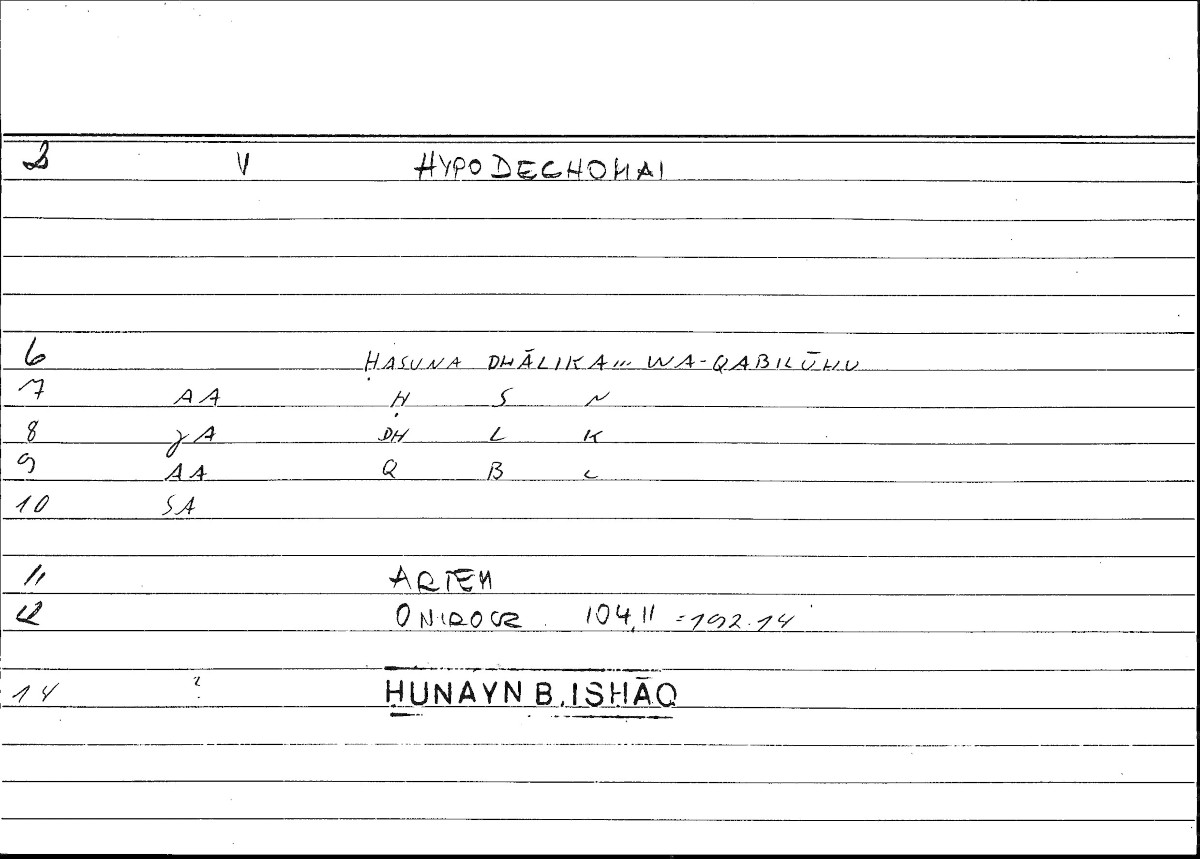 2 V HYPODECHOMAI
6 ḤASUNA DHĀLIKA... WA-QABILŪHU
7 AA Ḥ S N
8 γA DH L K
9 AA Q B L
10 SA
11 ARTEM
12 ONIROCR. 104,11 = 192.14
14 ? ḤUNAYN B. ISḤĀQ